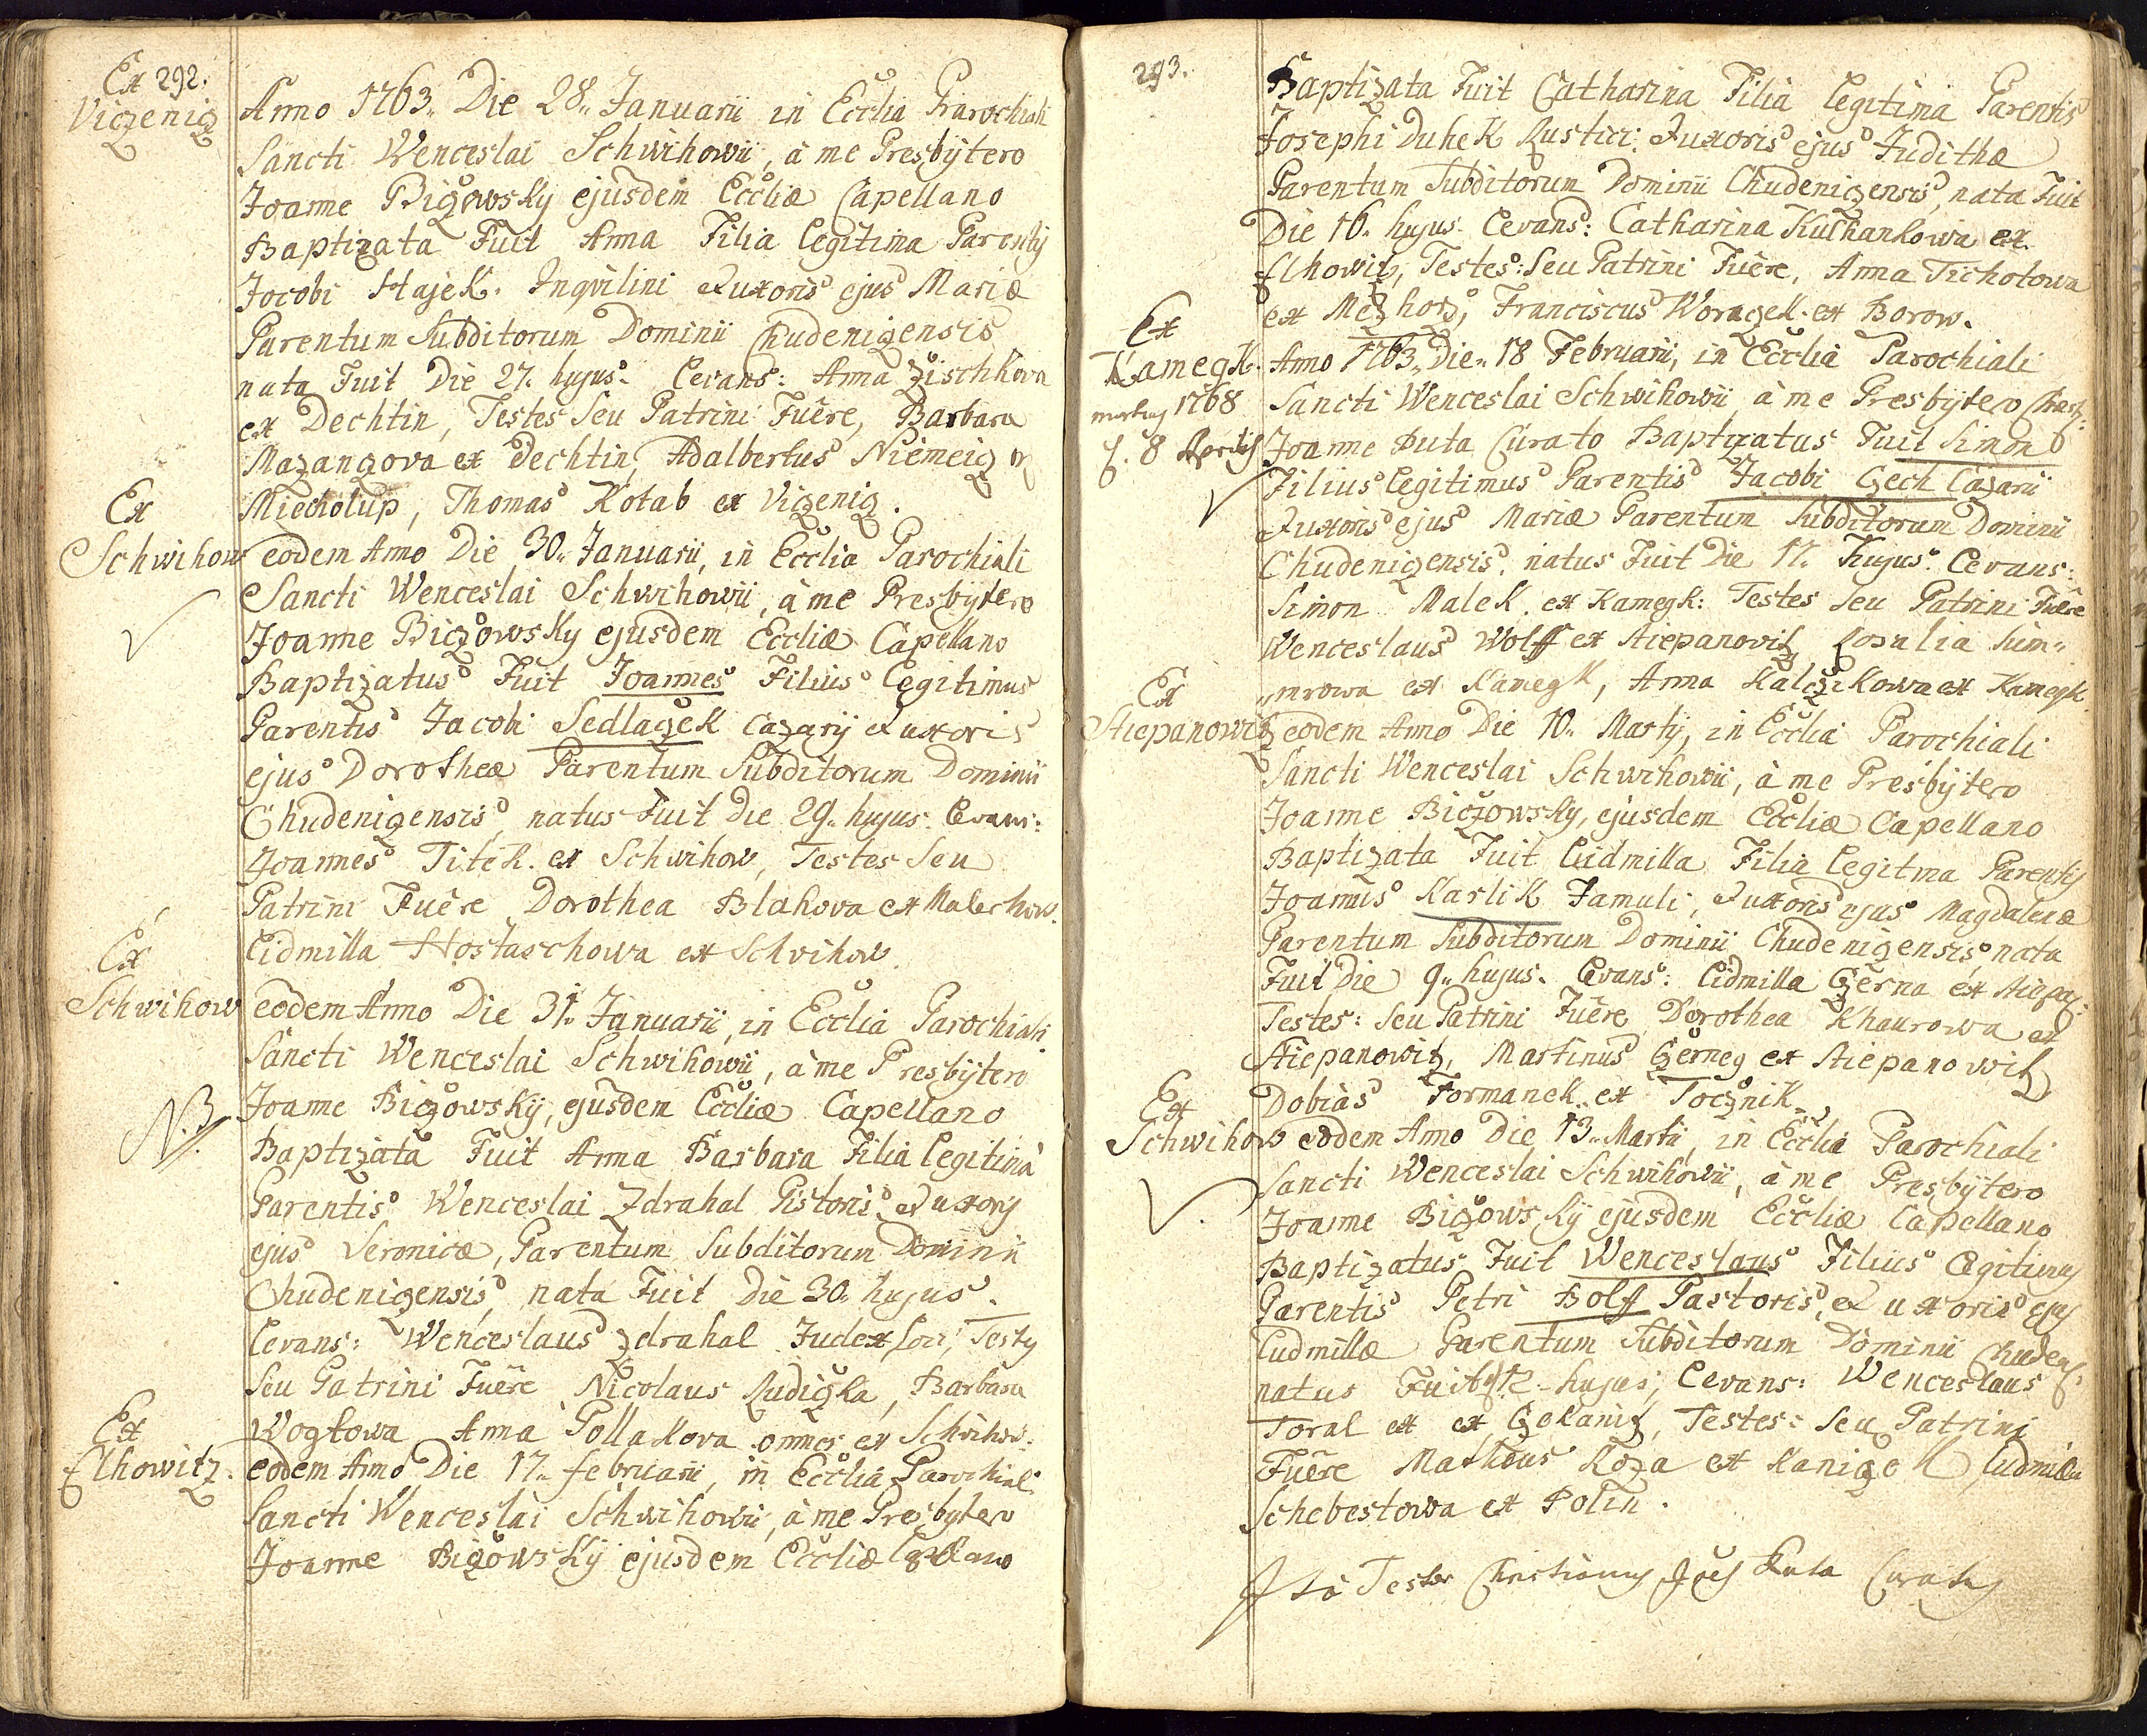 292.
Ex
Viczenig
Anno 1763. Die 28. Januarii in Ecclia Parochiali
Sancti Wenceslai Schwihowii, à me Presbÿtero
Joanne Biczowsky ejusdem Eccliæ Capellano
Baptizata Fuit Anna Filia Legitima Parentis
Jocobi Hajek. Inqvilini & uxoris ejus Mariæ
Parentum Subditorum Dominii Chudenizensis
nata Fuit Die 27. hujus. Levans: Anna Zischkova
ex Dechtin, Testes Seu Patrini Fuêre, Barbara
Mazanzova ex Dechtin, Adalbertus Niemeiz ex
Miecholup, Thomas Kotab ex Vizenig.
Ex
Schwihow
eodem Anno Die 30. Januarii, in Ecclia Parochiali
Sancti Wenceslai Schwihowii, à me Presbÿtero
Joanne Biczowsky ejusdem Eccliæ Capellano
Baptizatus Fuit Joannes Filius Legitimus
Parentis Jacobi Sedlaczek Cazarij & uxoris
ejus Dorotheæ Parentum Subditorum Dominii
Chudenizensis, natus Fuit Die 29. hujus. Levans:
Joannes Titek. ex Schwihow, Testes Seu
Patrini Fuêre Dorothea Blahova ex Malechow.
Lidmilla Hostaschowa ex Schvihow.
Ex
Schwihow
eodem Anno Die 31. Januarii, in Ecclia Parochiali
Sancti Wenceslai Schwihowii, à me Presbÿtero
N.B.
Joanne Biczowskÿ, ejusdem Eccliæ Capellano
Baptizata Fuit Anna Barbara Filia Legitima
Parentis Wenceslai Zdrahal Pistoris & uxoris
ejus Veronicæ, Parentum Subditorum Dominii
Chudenizensis, nata Fuit Die 30. hujus.
Levans: Wenceslaus Zdrahal Judex Loci, Testes
Seu Patrini Fuêre Nicolaus Rudiczka, Barbara
Wogtowa Anna Pollakova omnes ex Schvihow:
Ex
Elhowitz.
eodem Anno Die 17. februarii, in Ecclia Parochiali
Sancti Wenceslai Schwihowii, à me Presbytero
Joanne Bizowskÿ ejusdem Eccliæ Capellano
293.
Baptizata Fuit Catharina Filia Legitima Parentis
Josephi Duhek Rustici. & uxoris ejus Judithæ
Parentum Subditorum Dominii Chudenizensis, nata Fuit
Die 16. hujus. Levans: Catharina Kulhankowa ex
Elhowitz, Testes: Seu Patrini Fuêre, Anna Tichotowa
ex Mezhorz, Franciscus Woraczek. ex Borow.
Ex
Kamegk.
Anno 1763. Die. 18 Februarii, in Ecclia Parochiali
1768
Sancti Wenceslai Schwihowii à me Presbÿtero
8 Aprilis
Joanne Puta Curato Baptizatus Fuit Simon
Filius Legitimus Parentis Jacobi Czech Cazarii
& uxoris ejus Mariæ Parentum Subditorum Dominii
Chudenizensis. natus Fuit Die 17. hujus. Levans:
Simon Malek. ex Kamegk: Testes Seu Patrini Fuêre
Wenceslaus Wolff ex Stiepanovitz Rosalia Sim„
„mrowa ex Kamegk, Anna Kalczikowa ex Kamegk.
Ex
Stiepanowitz
eodem Anno Die 10. Martij, in Ecclia Parochiali
Sancti Wenceslai Schwihowii, à me Presbÿtero
Joanne Biczowsky, ejusdem Eccliæ Capellano
Baptizata Fuit Lidmilla Filia Legitma Parentis
Joannis Karlik Famuli, & uxoris ejus Magdalenæ
Parentum Subditorum Dominii Chudenizensis, nata
Fuit Die 9. hujus. Levans: Lidmilla Czerna ex Stiepa:
Testes: Seu Patrini Fuêre Dorothea Khaurowa ex
Stiepanowitz, Martinus Czerneg ex Stiepanowitz
Dobiàs Formanek. ex Tocznik.
Ex
Schwihow
eodem Anno Die 13. Martii, in Ecclia Parochiali
Sancti Wenceslai Schwihowii, à me Presbÿtero
Joanne Bizowskÿ ejusdem Eccliæ Capellano
Baptizatus Fuit Wenceslaus Filius Legitimus
Parentis Petri Bolff Pastoris, & uxoris ejus
Ludmillæ Parentum Subditorum Dominii Chudens.
natus Fuit 12. hujus, Levans: Wenceslaus
Toral ex ex Czekanitz, Testes: Seu Patrini
Fuêre Mathæus Koza ex Kanizek Ludmilla
Schebestowa ex Polin.
Ita Testor Christianus Puta Curatus